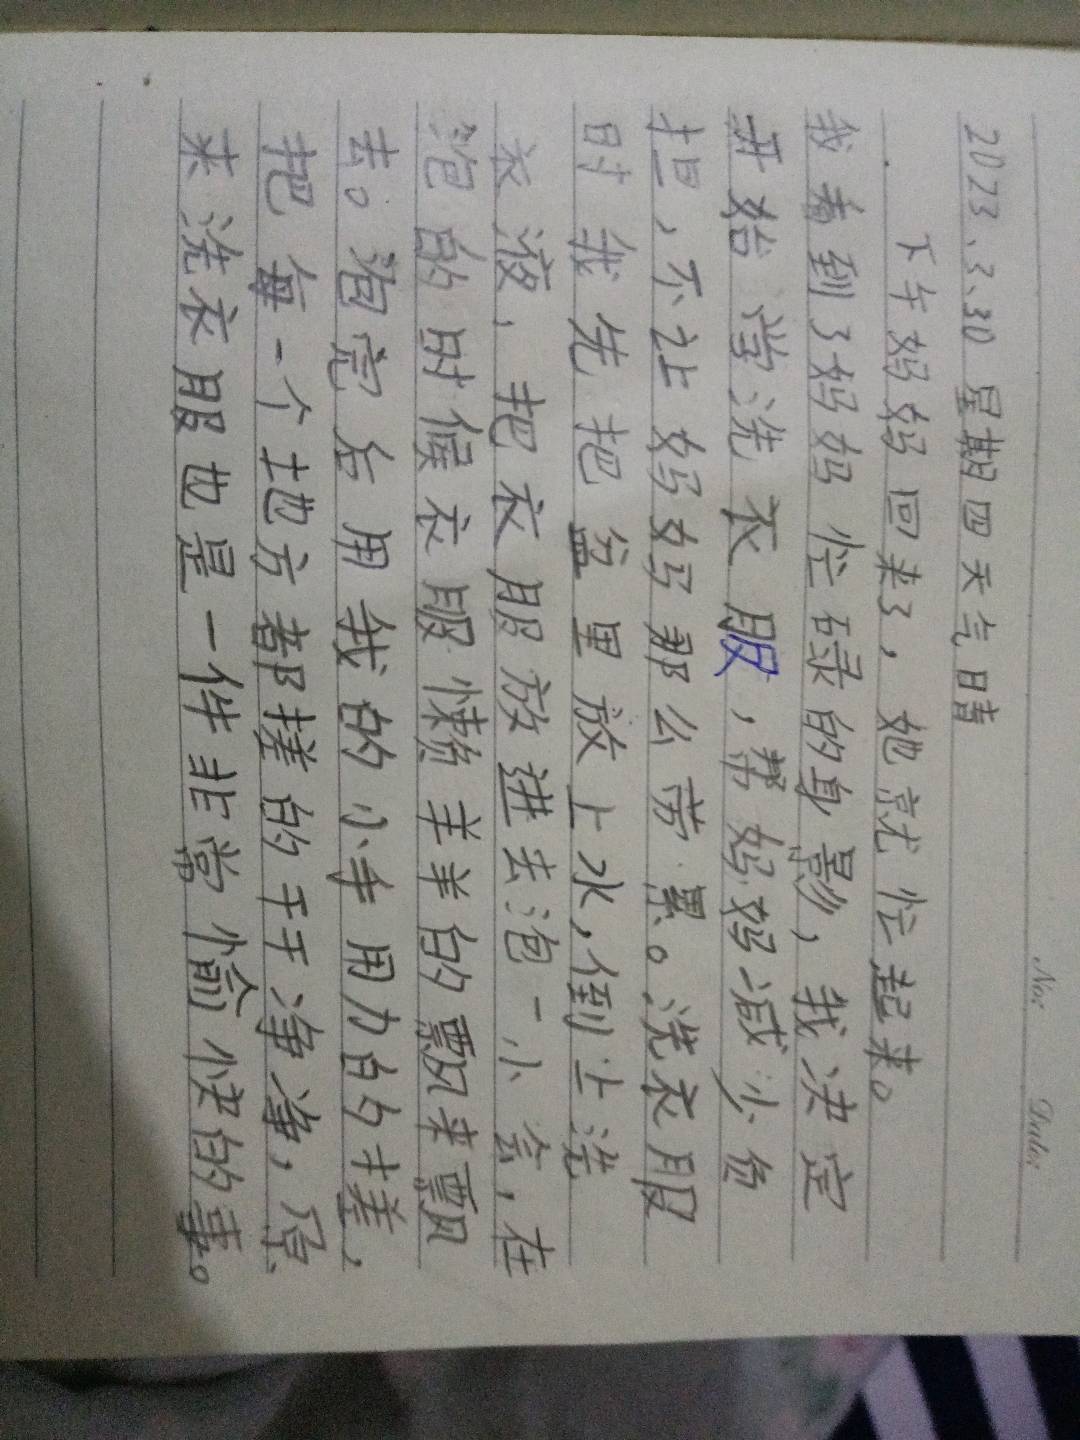 No:
Date:
2023、3、30 星期四 天气晴
下午妈妈回来了，她就忙起来。
我看到了妈妈忙碌的身影，我决定
开始尝洗衣服，帮妈妈减少负
担，不让妈妈那么劳累。洗衣服
时我先把盆里放上水，倒上洗
衣液，把衣服放进去泡一小会，在
泡的时候衣服懒羊羊的飘来飘
去。泡完后用我的小手用力的搓，
把每一个地方都搓的干干净净，原
来洗衣服也是一件非常愉快的事。